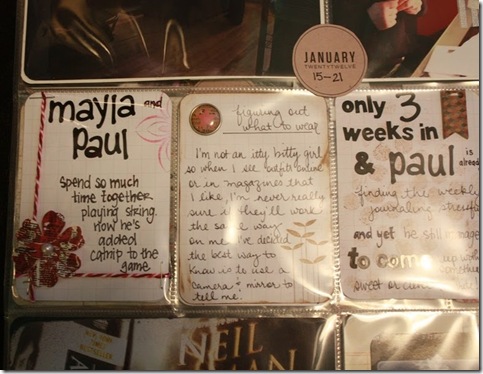 JANUARY
TWENTYTWELVE
15-21
mayla and
paul
Spend so much
time together
playing string.
now he's
added
catnip to the
game
figuring out
what to wear
I'm not an itty bitty girl
so when I see outfits online
or in magazines that
I like, I'm never really
sure if they'll work
the same way
on me. I've decided
the best way to
know is to use a
camera & mirror to
tell me.
only 3
weeks in
& paul is
already
finding the weekly
journaling stressful
and yet he still manages
to come up with
something
sweet or
NEIL
BESTSELLER